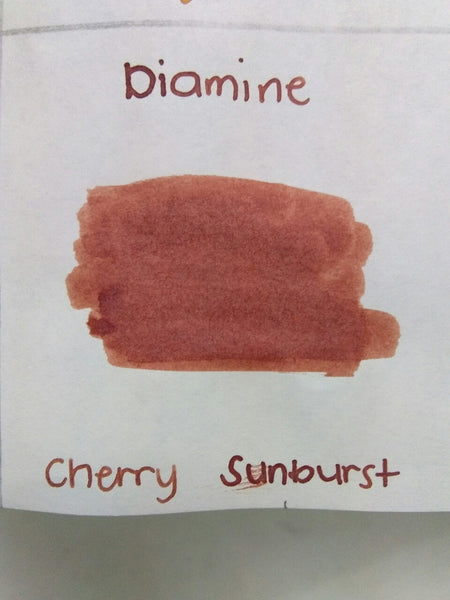 Diamine
Cherry Sunburst